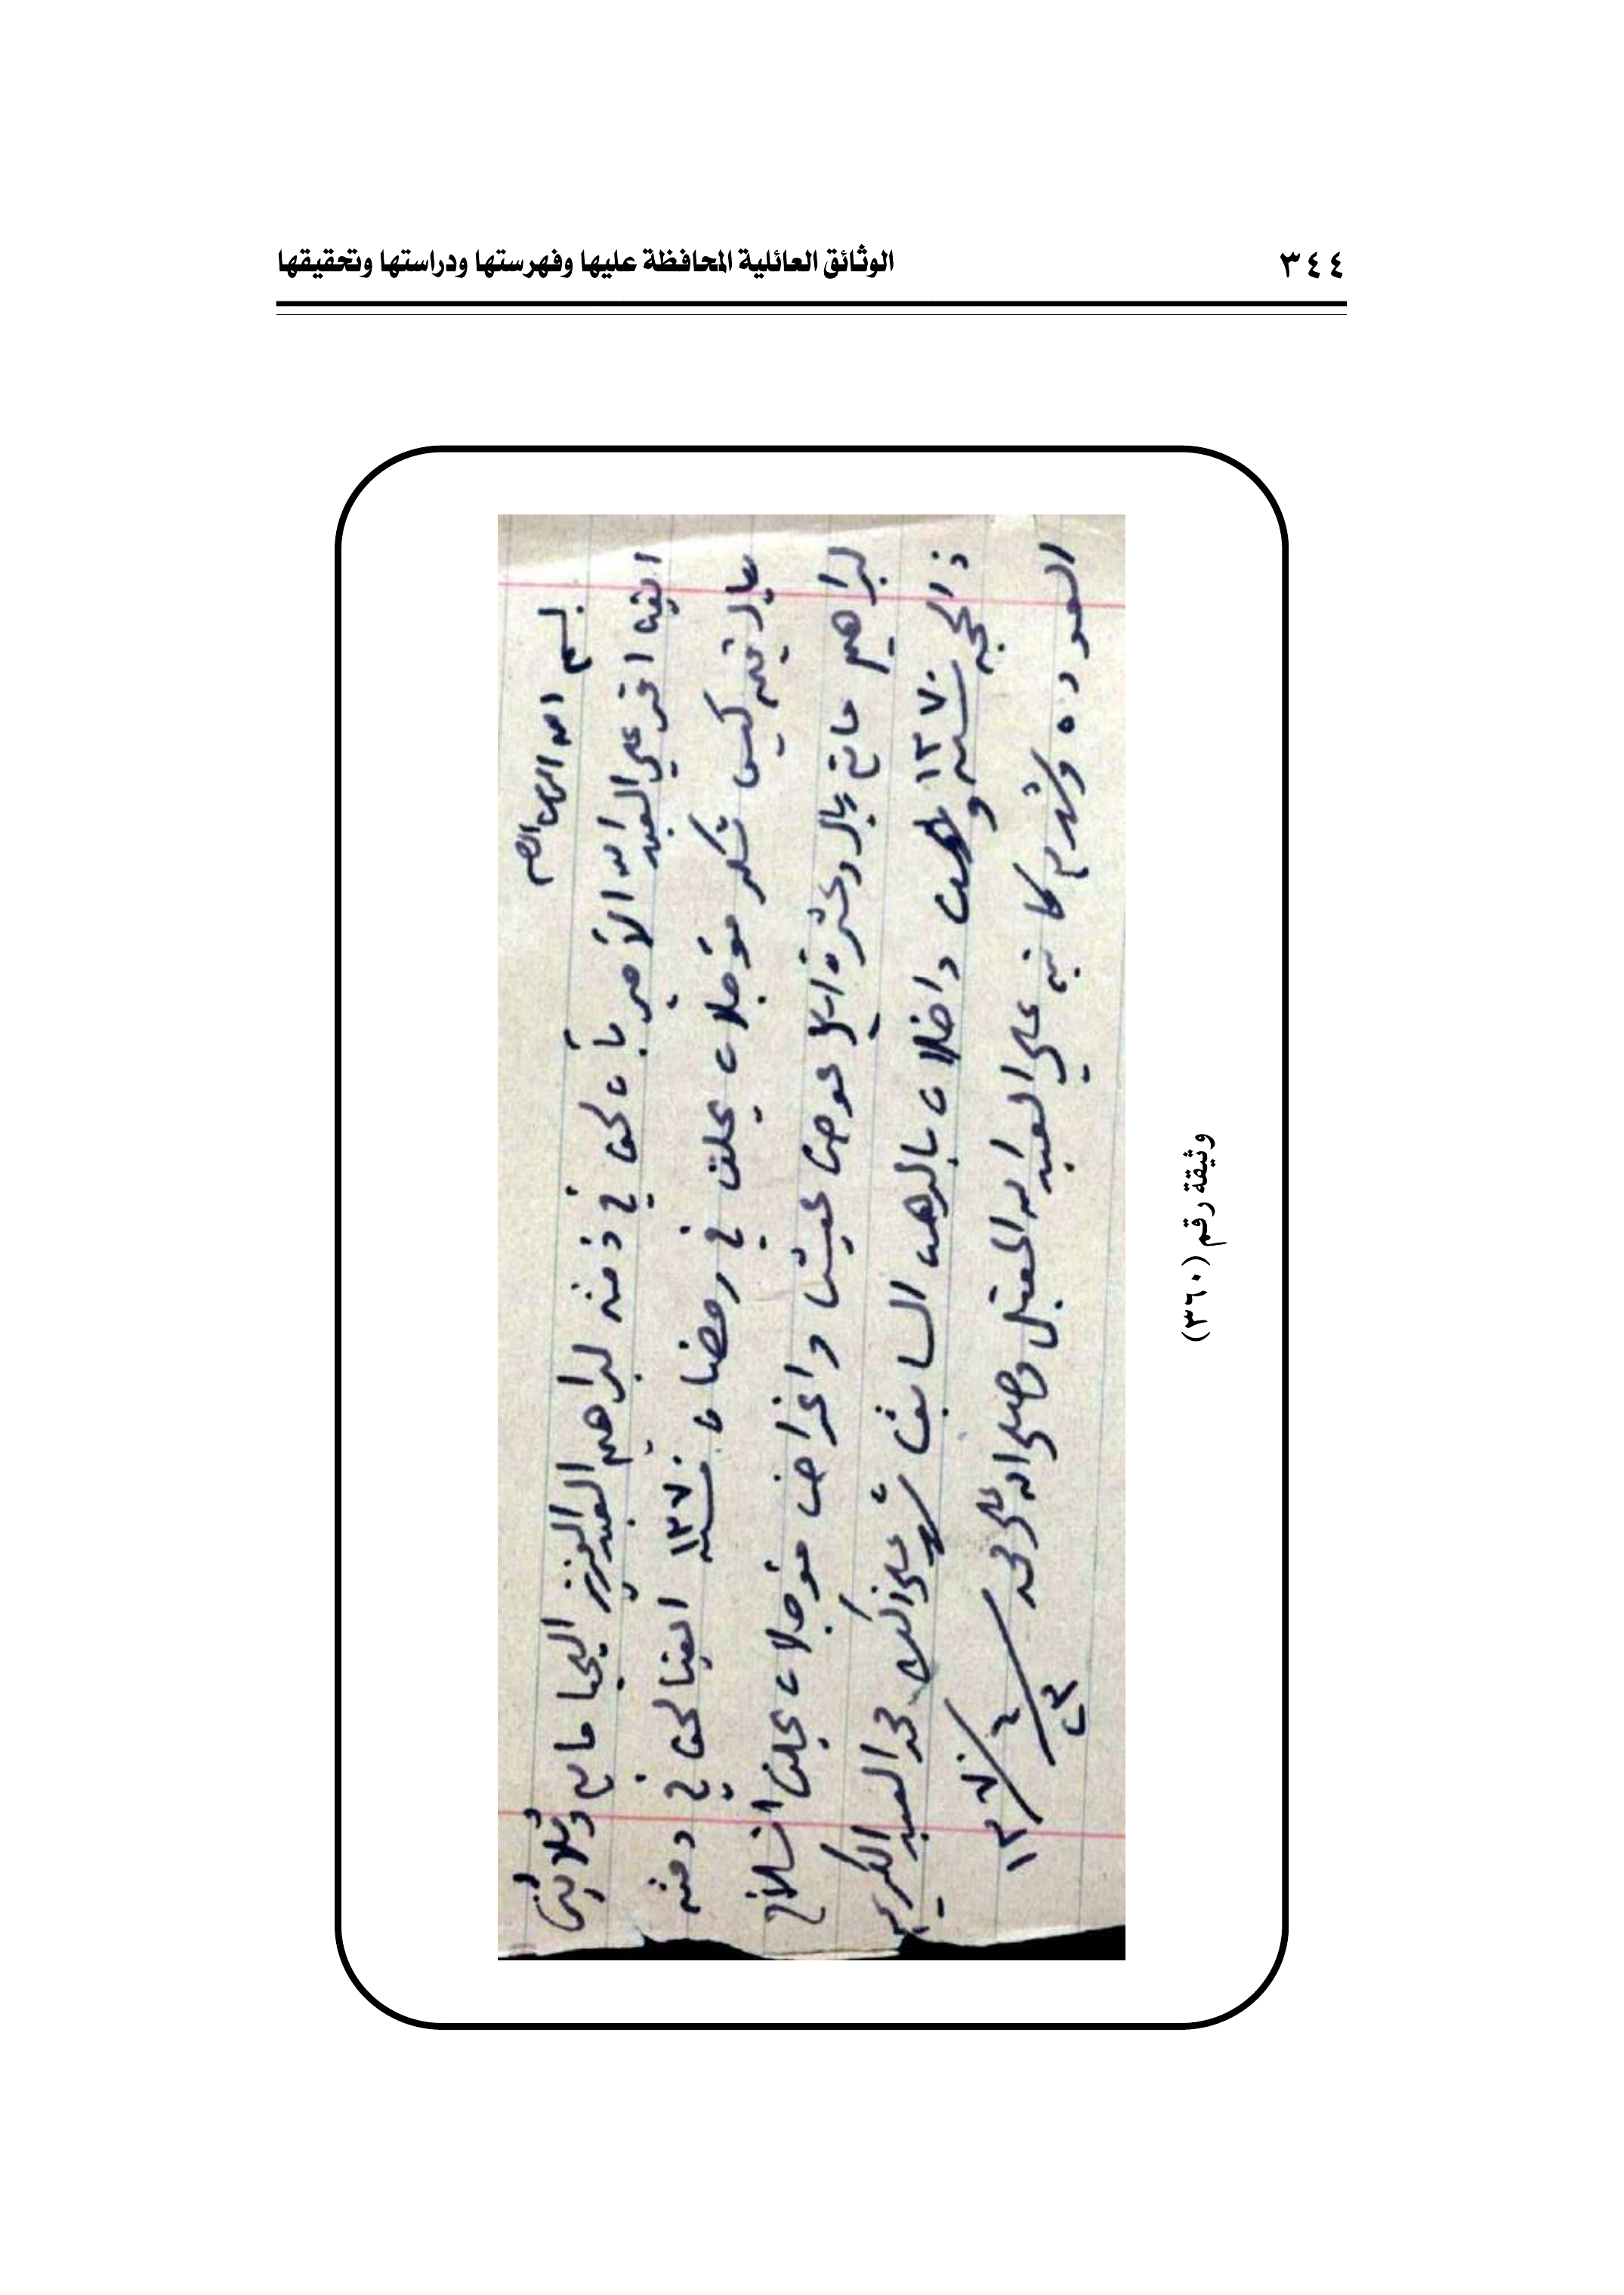 ٣٤٤
الوثائق العائلية المحافظة عليها وفهرستها ودراستها وتحقيقها
بسم الله الرحمن الرحيم
ايضا اقر علي العبد الله الأمير بأن لحق في ذمته لبراهيم العبد العزيز اليحيا مايه وثلاثين
يال قيمه كيس سكر مؤجلات يحلن في رمضان سنه ١٣٧٠ ايضا لحق في ذمته
لبراهيم مايه يال وعشرة اريل عوض عيش واغراض مؤجلات يحلن انسلاخ
ذالحجه سنه ١٣٧٠ و داخلات بالرهن السابق شهد على ذالك محمد العبد الكريم
العوده وشهد به كاتبه علي العبد الله المقبل وصلى الله على محمد
٢٣ / ٤ / ١٣٧٠
وثيقة رقم (٣٦٠)